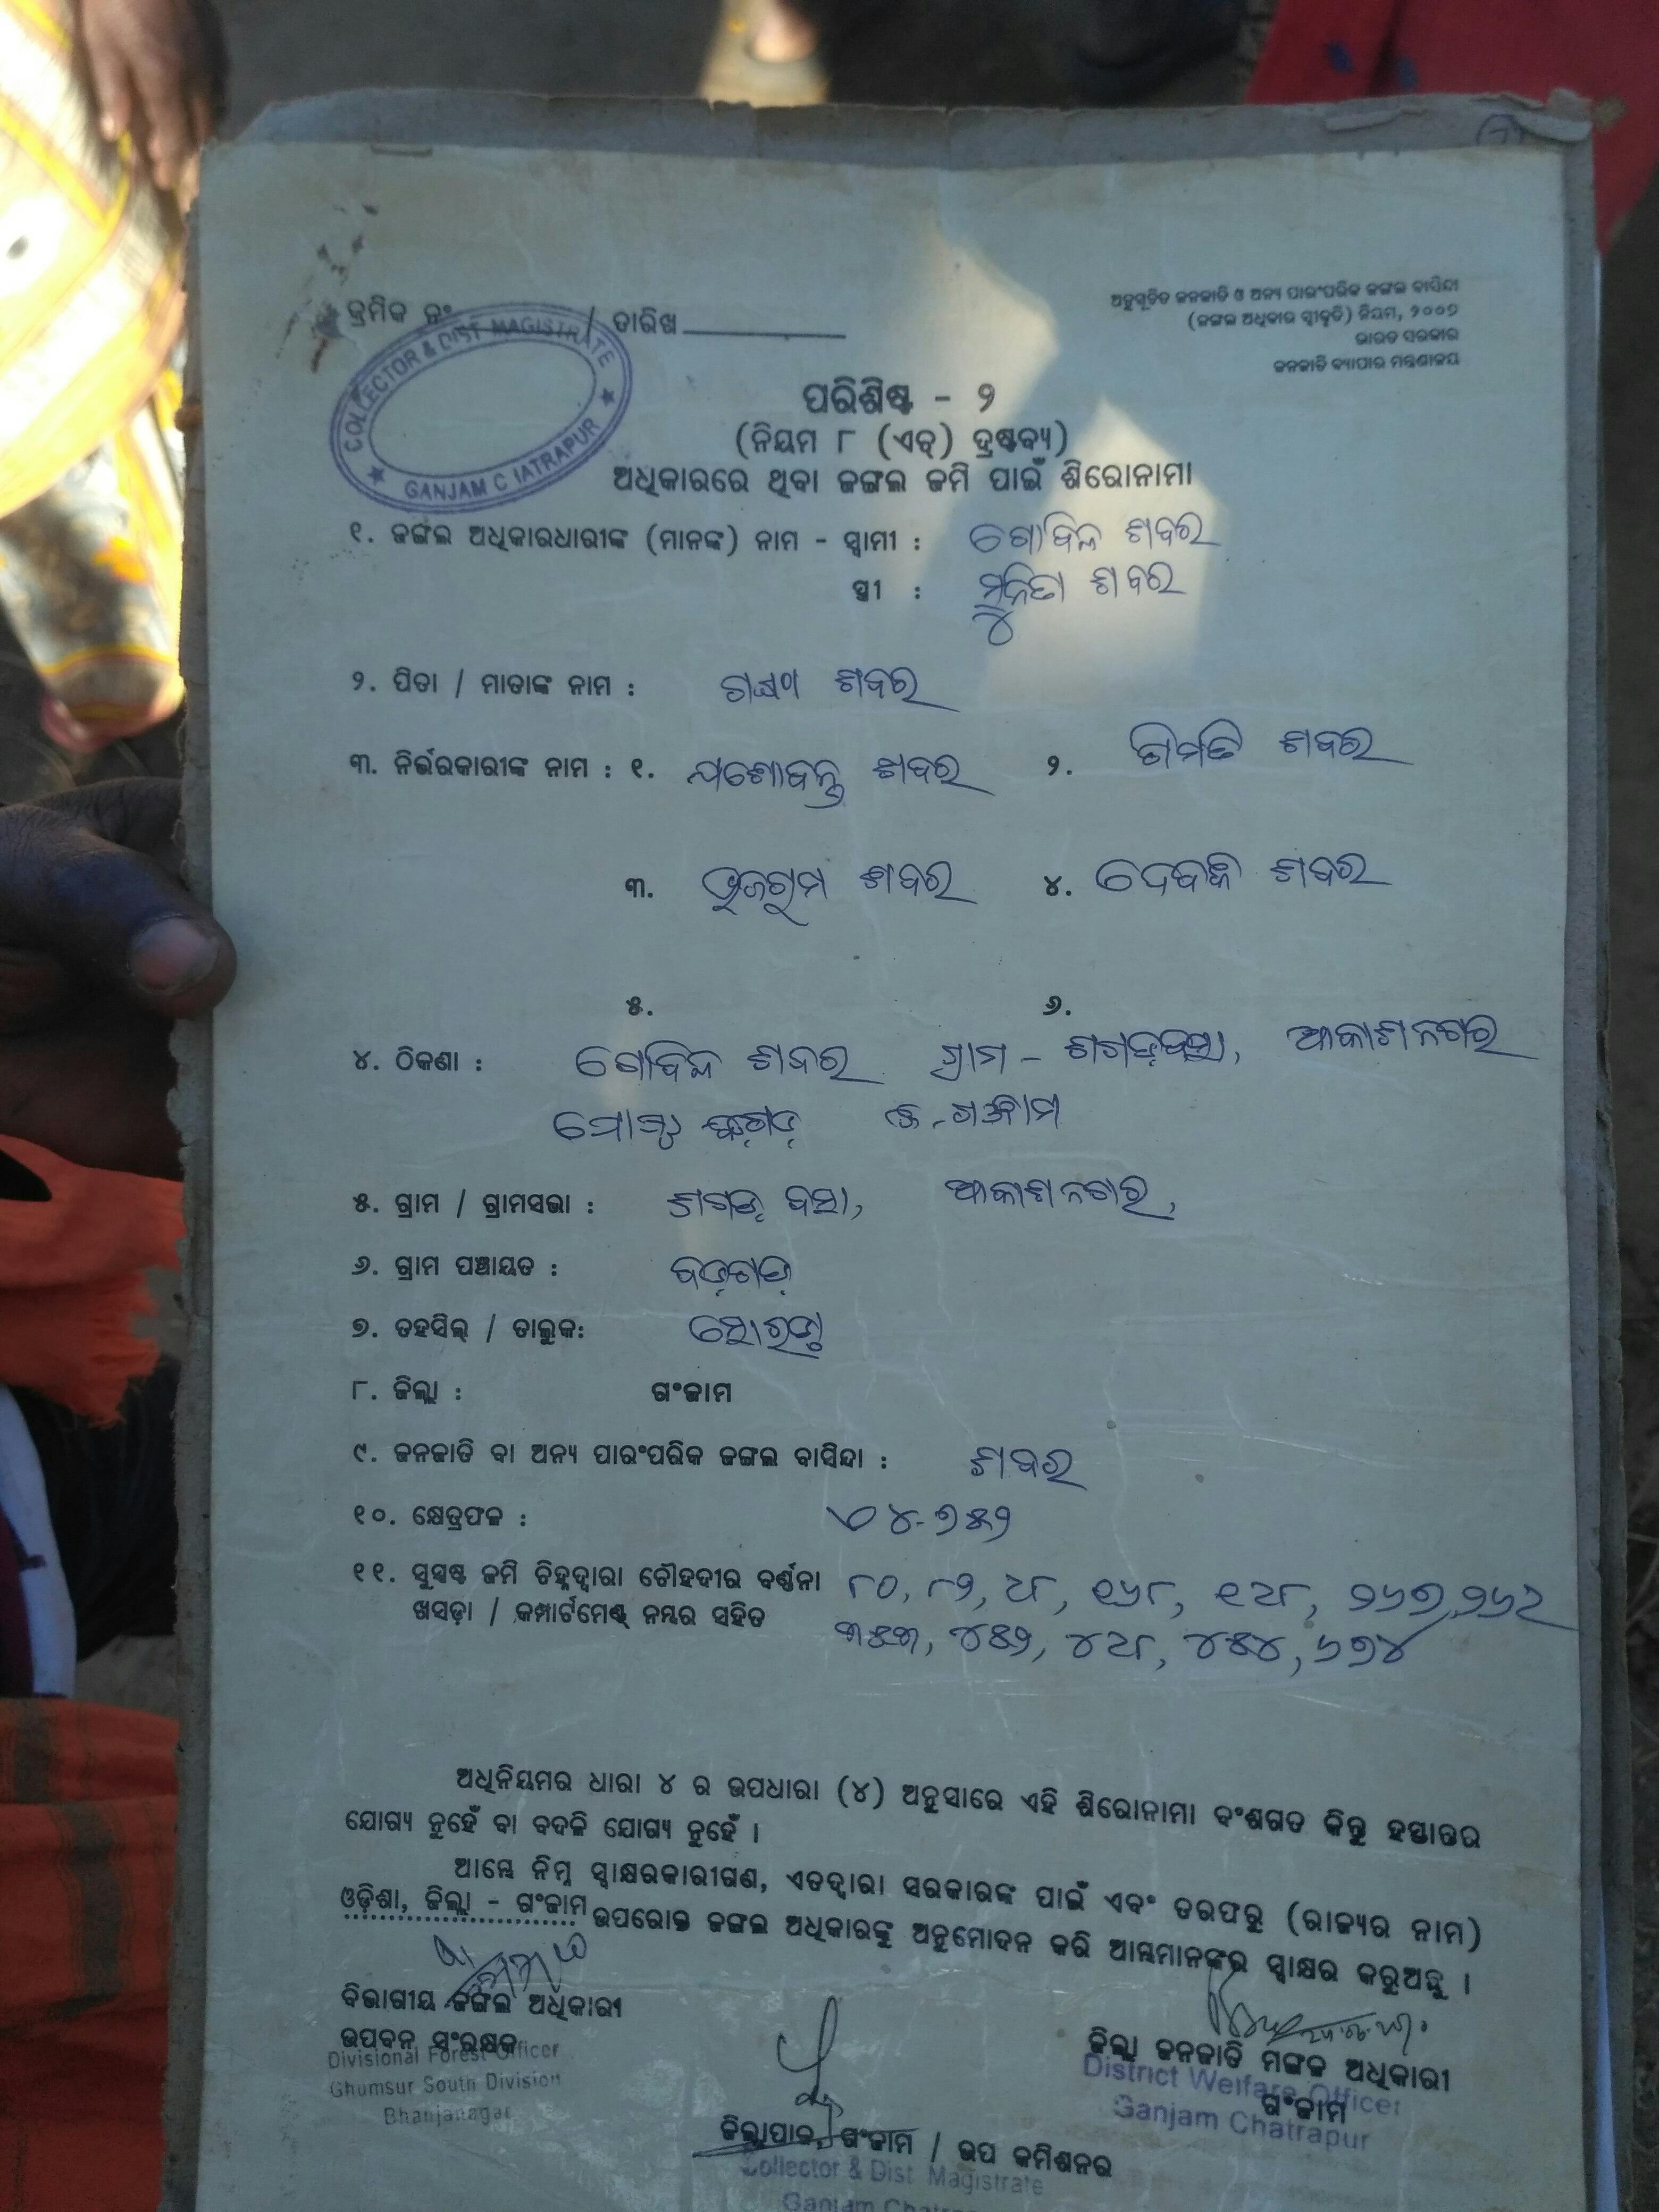 କ୍ରମିକ ନଂ / ତାରିଖ
ଅନୁସୂଚିତ ଜନଜାତି ଓ ଅନ୍ୟ ପାରଂପରିକ ଜଙ୍ଗଲ ବାସିନ୍ଦା
(ଜଙ୍ଗଲ ଅଧିକାର ସ୍ୱୀକୃତି) ନିୟମ, ୨୦୦୭
ଭାରତ ସରକାର
ଜନଜାତି ବ୍ୟାପାର ମନ୍ତ୍ରଣାଳୟ
COLLECTOR & DIST MAGISTRATE
GANJAM C IATRAPUR
ପରିଶିଷ୍ଟ - ୨
(ନିୟମ ୮ (ଏଚ୍) ଦ୍ରଷ୍ଟବ୍ୟ)
ଅଧିକାରରେ ଥିବା ଜଙ୍ଗଲ ଜମି ପାଇଁ ଶିରୋନାମା
୧. ଜଙ୍ଗଲ ଅଧିକାରଧାରୀଙ୍କ (ମାନଙ୍କ) ନାମ - ସ୍ୱାମୀ : ଗୋବିନ୍ଦ ଶବର
ସ୍ତ୍ରୀ : ଶବର
୨. ପିତା / ମାତାଙ୍କ ନାମ : ଶବର
୩. ନିର୍ଭରକାରୀଙ୍କ ନାମ : ୧. ଯଶୋବନ୍ତ ଶବର ୨. ଶବର
୩. ଶବର ୪. ଦେବକି ଶବର
୫. ୬.
୪. ଠିକଣା : ଗୋବିନ୍ଦ ଶବର ଗ୍ରାମ - ଆକାଶନଗର
ଗଞ୍ଜାମ
୫. ଗ୍ରାମ / ଗ୍ରାମସଭା : ଆକାଶନଗର,
୬. ଗ୍ରାମ ପଞ୍ଚାୟତ : ବଡ଼ଗଡ଼
୭. ତହସିଲ୍ / ତାଲୁକ: ସୋରଡ଼ା
୮. ଜିଲ୍ଲା : ଗଂଜାମ
୯. ଜନଜାତି ବା ଅନ୍ୟ ପାରଂପରିକ ଜଙ୍ଗଲ ବାସିନ୍ଦା : ଶବର
୧୦. କ୍ଷେତ୍ରଫଳ : ୪.୭୫୨
୧୧. ସୁସ୍ପଷ୍ଟ ଜମି ଚିହ୍ନଦ୍ୱାରା ଚୌହଦୀର ବର୍ଣ୍ଣନା ୮୦, ୮୨, ୯୮, ୧୬୮, ୧୯୮, ୨୬୭, ୨୬୯
ଖସଡ଼ା / କମ୍ପାର୍ଟମେଣ୍ଟ୍ ନମ୍ବର ସହିତ ୩୫୩, ୪୫୨, ୪୯୮, ୪୫୪, ୬୭୪
ଅଧିନିୟମର ଧାରା ୪ ର ଉପଧାରା (୪) ଅନୁସାରେ ଏହି ଶିରୋନାମା ବଂଶଗତ କିନ୍ତୁ ହସ୍ତାନ୍ତର
ଯୋଗ୍ୟ ନୁହେଁ ବା ବଦଳି ଯୋଗ୍ୟ ନୁହେଁ ।
ଆମ୍ଭେ ନିମ୍ନ ସ୍ୱାକ୍ଷରକାରୀଗଣ, ଏତଦ୍ୱାରା ସରକାରଙ୍କ ପାଇଁ ଏବଂ ତରଫରୁ (ରାଜ୍ୟର ନାମ)
ଓଡ଼ିଶା, ଜିଲ୍ଲା - ଗଂଜାମ ଉପରୋକ୍ତ ଜଙ୍ଗଲ ଅଧିକାରଙ୍କୁ ଅନୁମୋଦନ କରି ଆମ୍ଭମାନଙ୍କର ସ୍ୱାକ୍ଷର କରୁଅଛୁ ।
ବିଭାଗୀୟ ଜଙ୍ଗଲ ଅଧିକାରୀ
ଉପବନ ସଂରକ୍ଷକ
Divisional Forest Officer
Ghumsur South Division
Bhanjanagar
ଜିଲ୍ଲା ଜନଜାତି ମଙ୍ଗଳ ଅଧିକାରୀ
ଗଂଜାମ
District Welfare Officer
Ganjam Chatrapur
ଜିଲ୍ଲାପାଳ, ଗଂଜାମ / ଉପ କମିଶନର
Collector & Dist. Magistrate